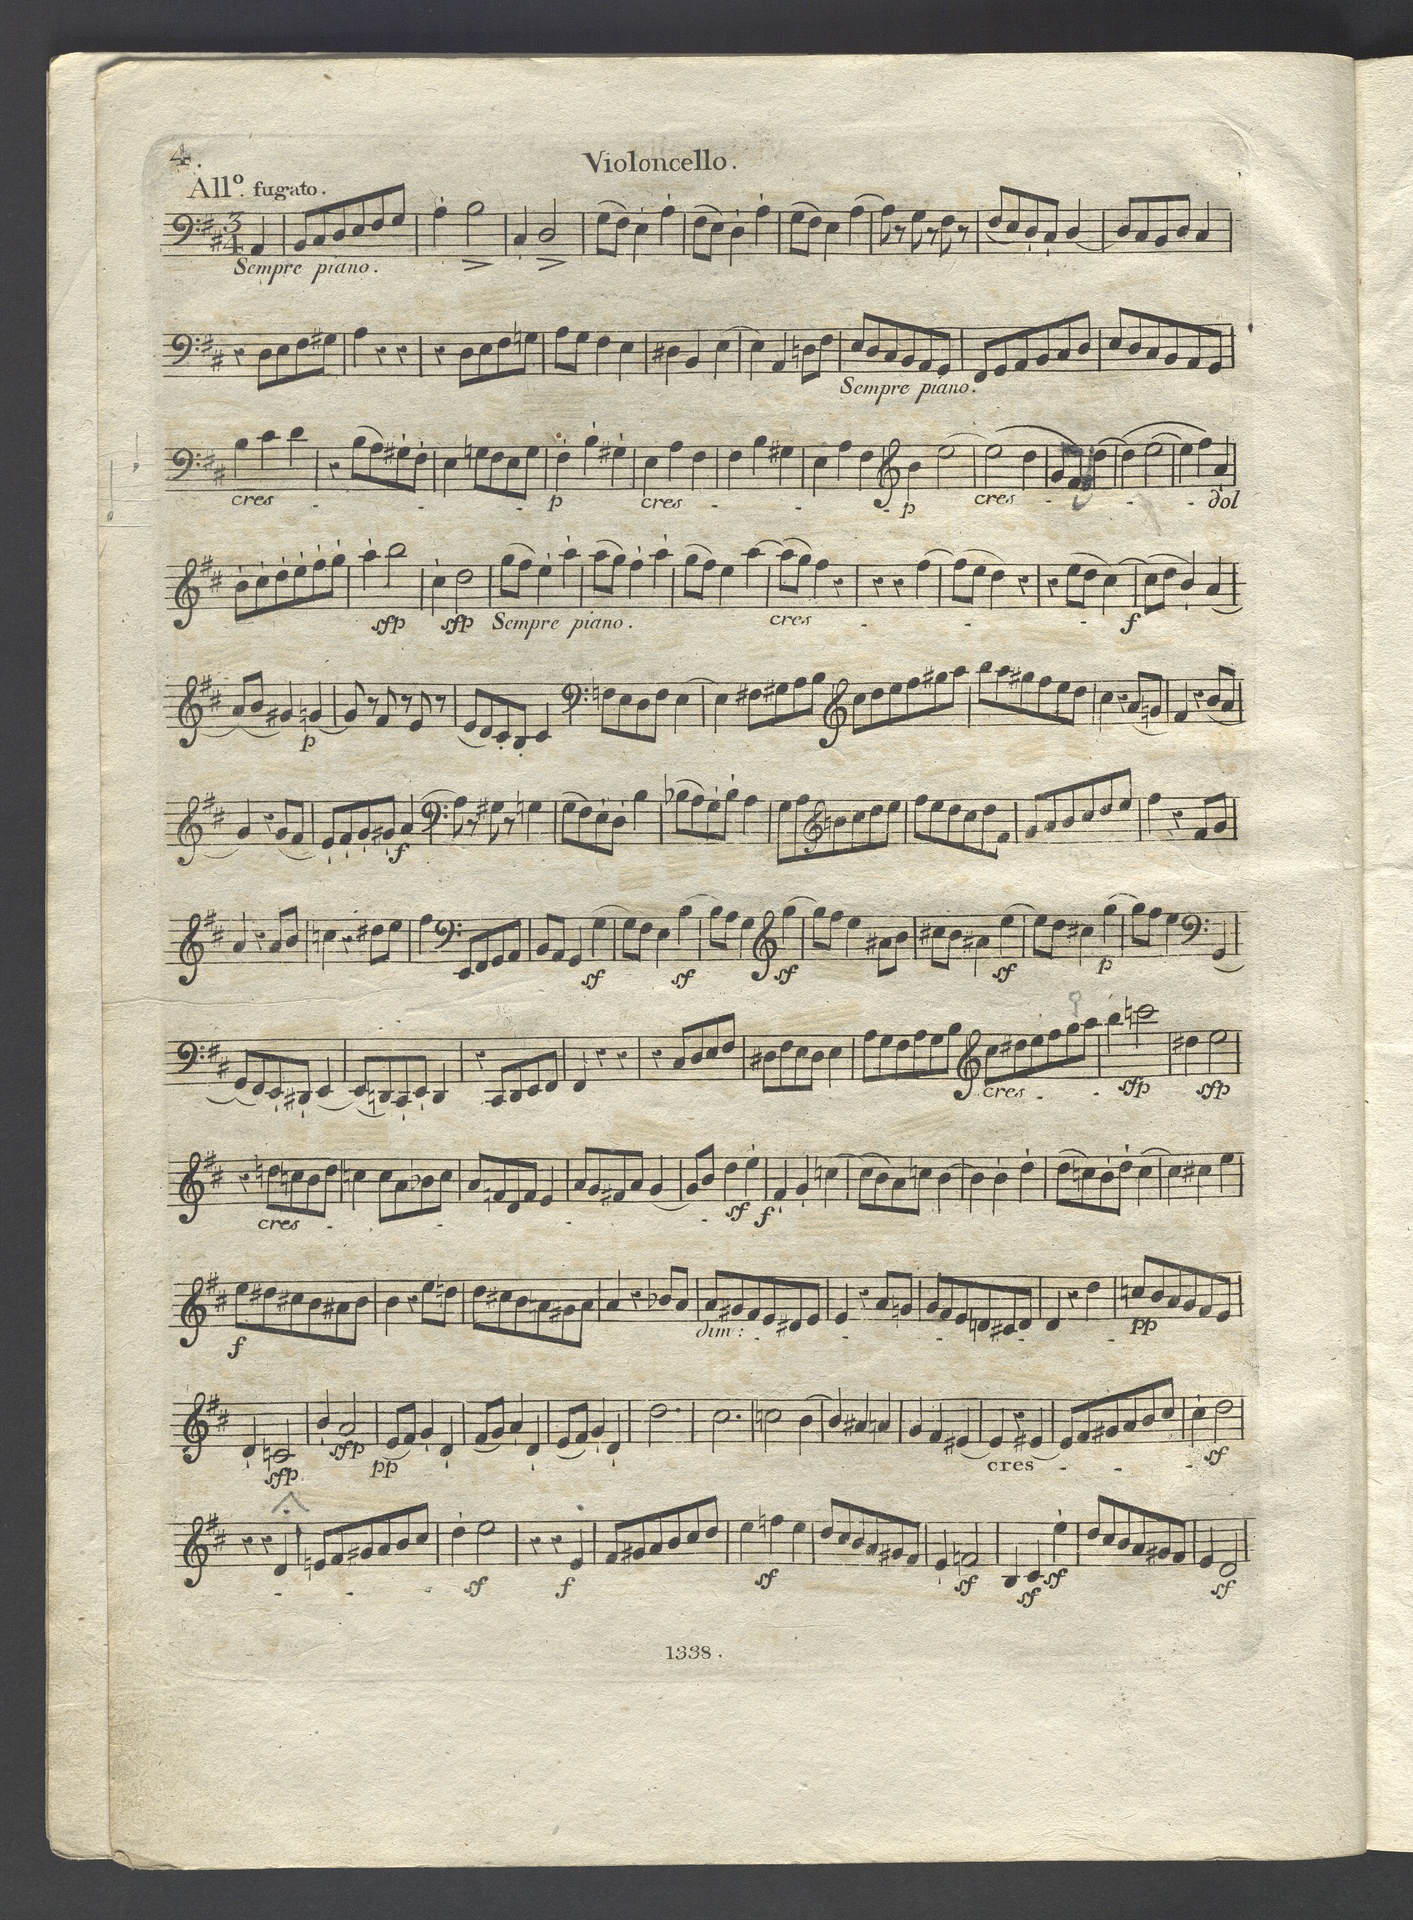 4.
Violoncello.
All°. fugato.
3
4
Sempre piano.
Sempre piano.
cres - - - p cres - - - p cres - - - dol
sfp sfp Sempre piano. cres - - - f
p
f
sf sf sf sf p
cres - - sfp sfp
cres - - - - sf f
f dim: - - - - pp
sfp sfp pp cres - - - sf
- - - sf f sf sf sf sf sf
1338.